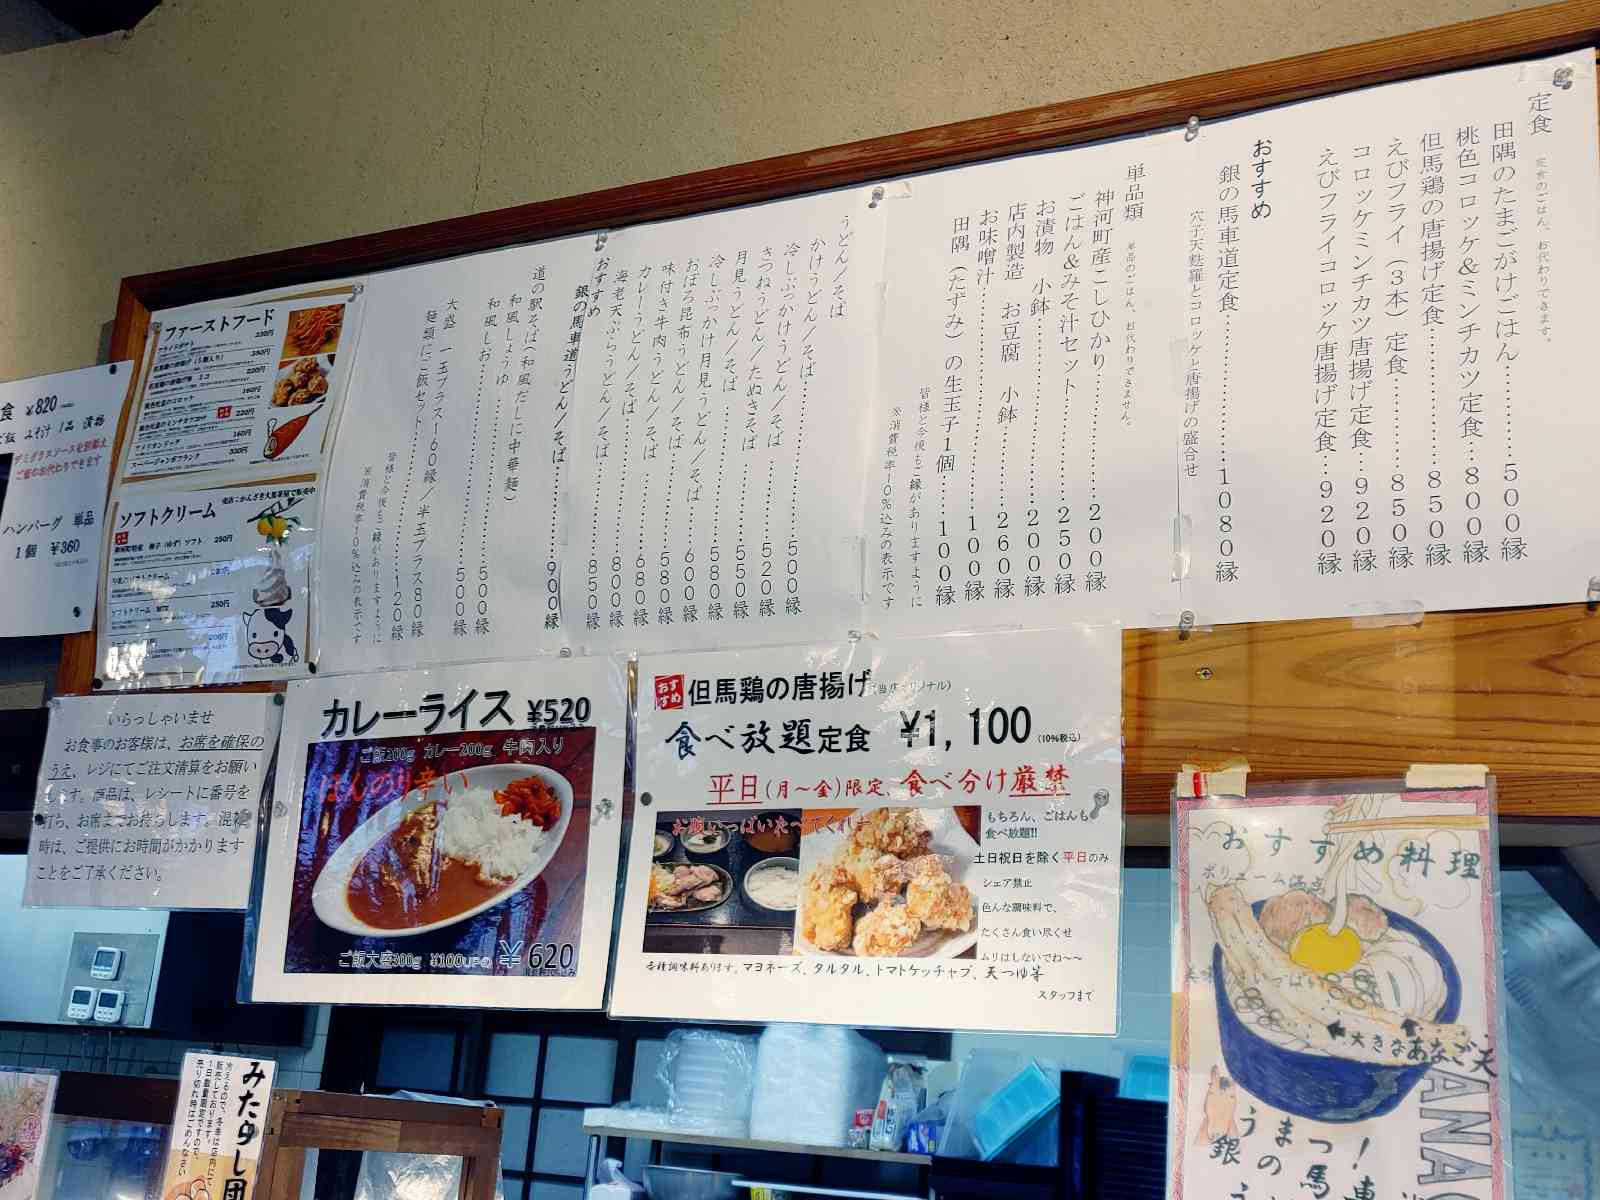 定食
定食のごはん、お代わりできます。
田隅のたまごがけごはん………500縁
桃色コロッケ&ミンチカツ定食…800縁
但馬鶏の唐揚げ定食………850縁
えびフライ(3本)定食………850縁
コロッケミンチカツ唐揚げ定食…920縁
えびフライコロッケ唐揚げ定食…920縁
おすすめ
銀の馬車道定食………1080縁
穴子天麩羅とコロッケと唐揚げの盛合せ
単品類
単品のごはん、お代わりできません。
神河町産こしひかり………200縁
ごはん&みそ汁セット………250縁
お漬物 小鉢………200縁
店内製造 お豆腐 小鉢………260縁
お味噌汁………100縁
田隅(たずみ)の生玉子1個………100縁
皆様と今後もご縁がありますように
※消費税率10%込みの表示です
うどん/そば
かけうどん/そば………500縁
冷しぶっかけうどん/そば………520縁
きつねうどん/たぬきそば………550縁
月見うどん/そば………580縁
冷しぶっかけ月見うどん/そば………600縁
おぼろ昆布うどん/そば………580縁
味付き牛肉うどん/そば………680縁
カレーうどん/そば………800縁
海老天ぷらうどん/そば………850縁
おすすめ
銀の馬車道うどん/そば………900縁
道の駅そば(和風だしに中華麺)
和風しょうゆ………500縁
和風しお………500縁
大盛 一玉プラス160縁/半玉プラス80縁
麺類にご飯セット………120縁
皆様と今後もご縁がありますように
※消費税率10%込みの表示です
ファーストフード
フライドポテト
330円
350円
220円
160円
220円
アメリカンドック
160円
スーパージャンボフランク
330円
売店:かんざき大黒茶屋で販売中
ソフトクリーム
神河町特産 柚子(ゆず)ソフト 250円
ソフトクリーム MIX 250円
200円
食 ¥820
ご飯 みそ汁 1品 漬物
デミグラスソースを別添え
ご飯のお代わりできます
ハンバーグ 単品
1個 ¥360
いらっしゃいませ
お食事のお客様は、お席を確保の
うえ、レジにてご注文清算をお願い
します。商品は、レシートに番号を
打ち、お席までお持ちします。混雑
時は、ご提供にお時間がかかります
ことをご了承ください。
カレーライス ¥520
ご飯200g カレー200g 牛肉入り
ほんのり辛い
ご飯大盛300g ¥100UPの ¥620
おすすめ
但馬鶏の唐揚げ(当店オリジナル)
食べ放題定食 ¥1,100 (10%税込)
平日(月~金)限定、食べ分け厳禁
お腹いっぱいたべてくれ
もちろん、ごはんも
食べ放題!!
土日祝日を除く平日のみ
シェア禁止
色んな調味料で、
たくさん食い尽くせ
ムリはしないでね~~
各種調味料あります。マヨネーズ、タルタル、トマトケッチャプ、天つゆ等
スタッフまで
おすすめ料理
ボリューム満点
大きなあなご天
うまっ!
銀の馬車
みたらし団
冷えるので、冬季は店内にて
販売しております。
1日数量限定ですので、
売り切れ時はごめんなさい